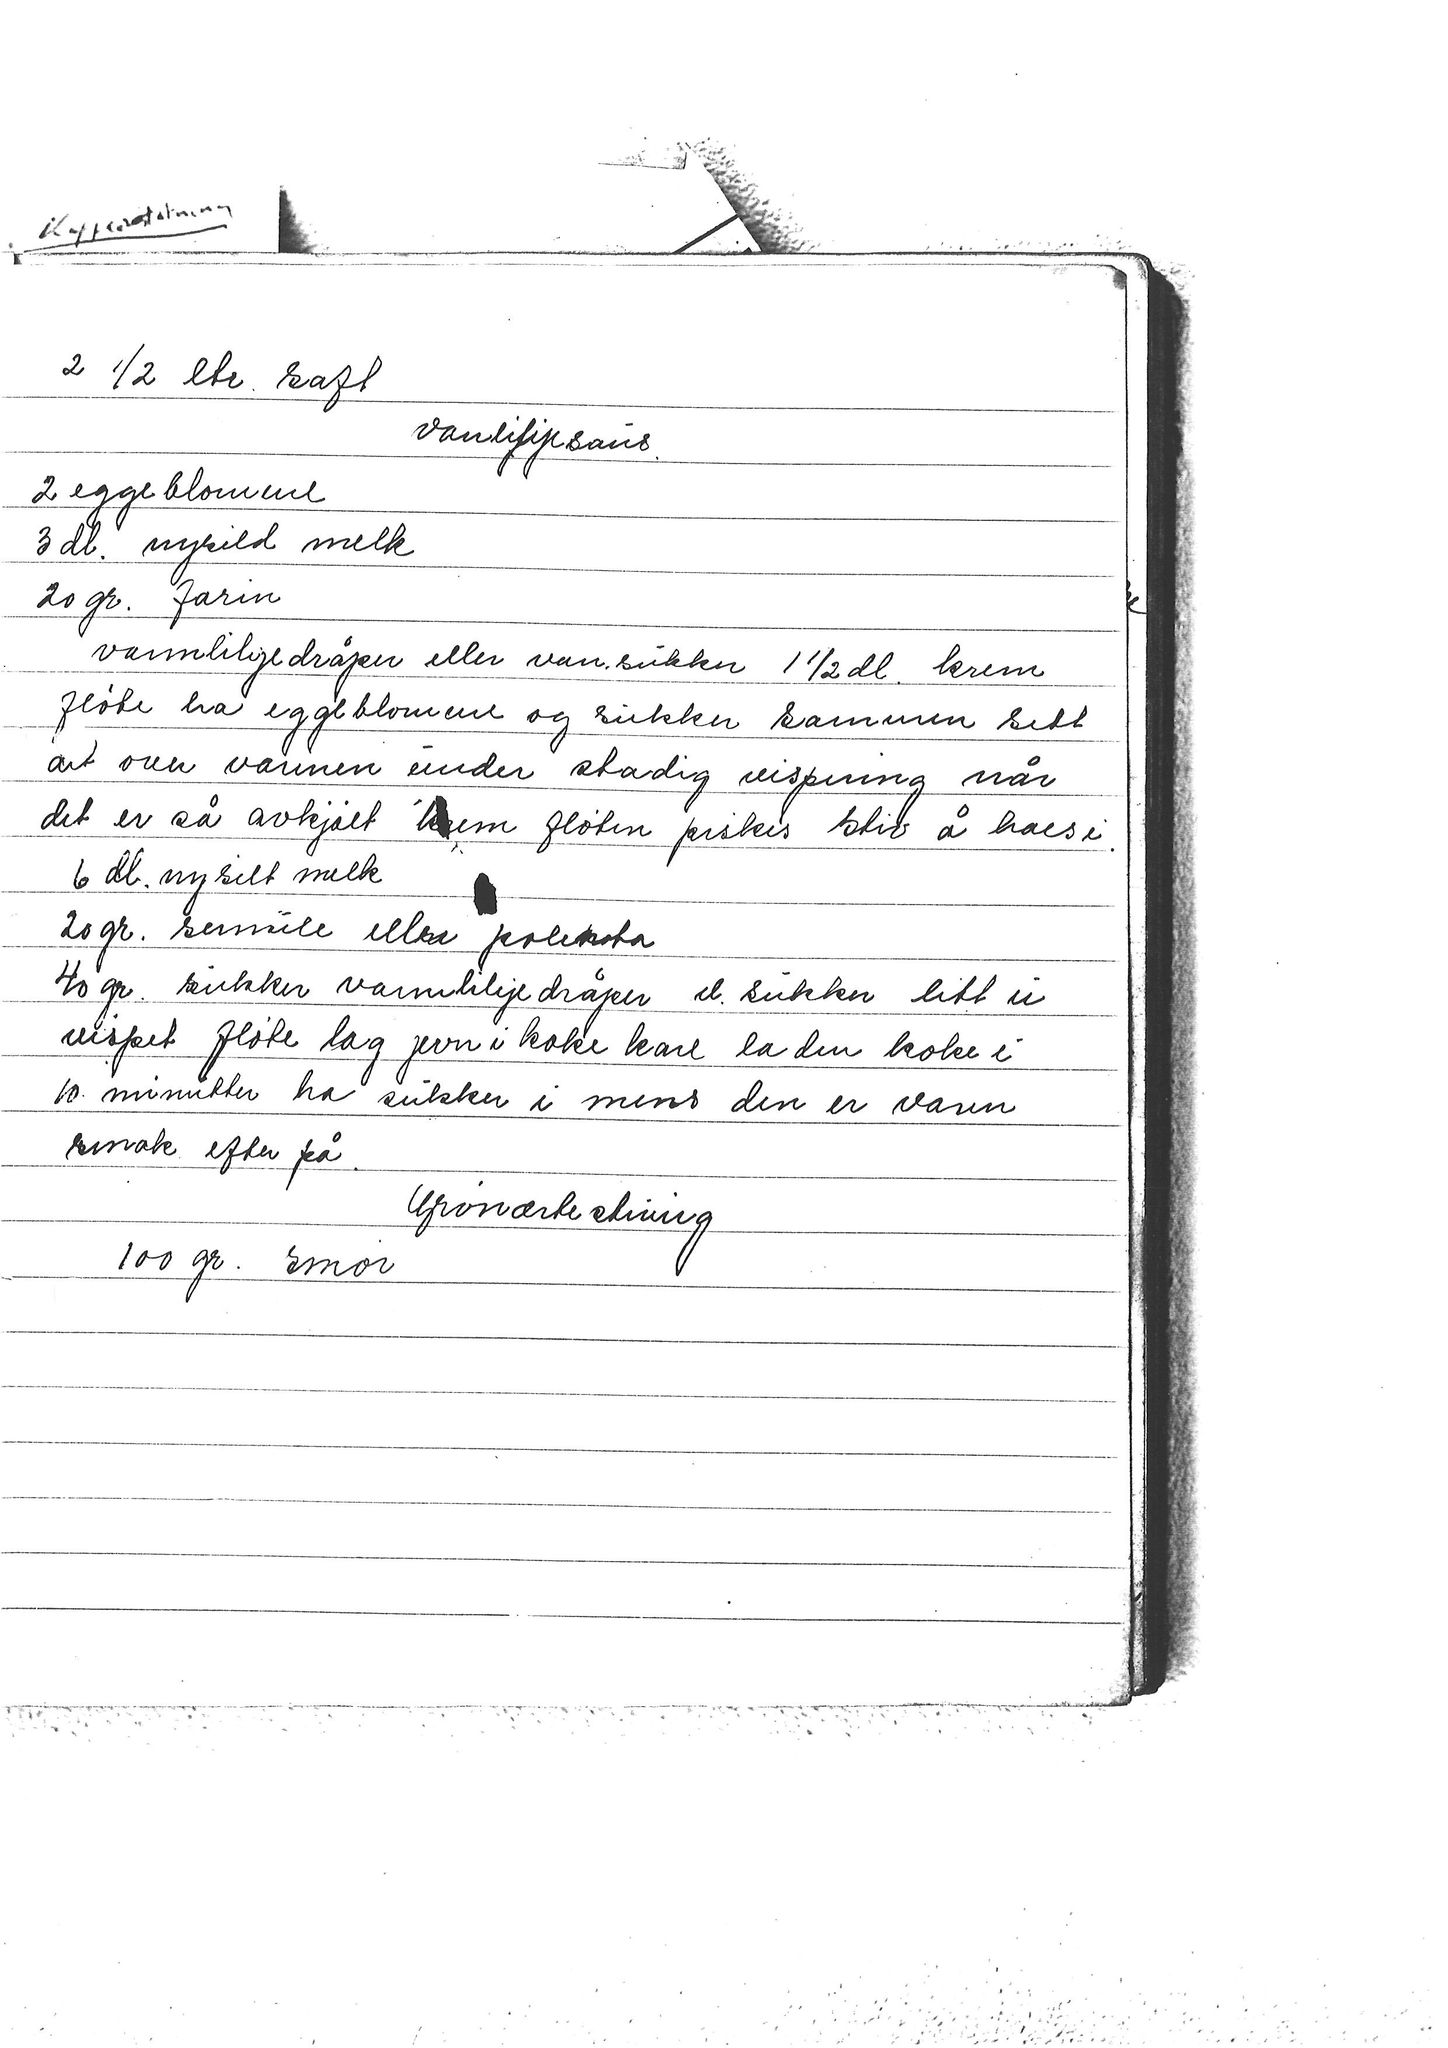 Kaffeerstatning
2 1/2 ltr. saft
vanliljesaus.
2 eggeblomme
3 dl. nysild melk
20 gr. farin
vannliljedråper eller van.sukker 1 1/2 dl. krem
fløte ha eggeblomme og sukker sammen sett
det over varmen under stadig visping når
det er så avkjølt krem fløten piskes stiv å haes i.
6 dl. nysilt melk
20 gr. semule eller polenta
40 gr. sukker vannliljedråper el. sukker litt u
vispet fløte lag jevn i koke kare la den koke i
10. minutter ha sukker i mens den er varm
smak efter på.
Grønærtestuing
100 gr. smør